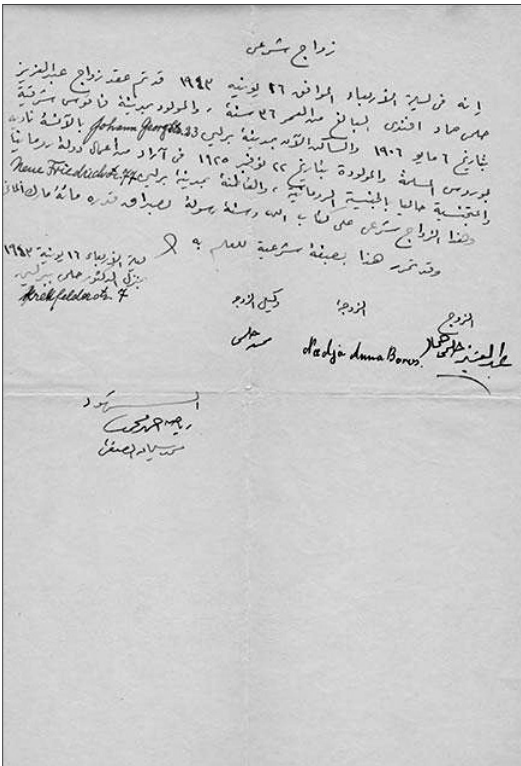 زواج شرعى
إنه فى ليلة الأربعاء الموافق ١٦ يونيه ١٩٤٣ قد تم عقد زواج عبد العزيز
حلمى حماد افندى البالغ من العمر ٣٦ سنة، والمولود بمدينة فاقوس شرقية
بتاريخ ٦ مايو ١٩٠٦ والساكن الآن بمدينة برلين Johann Georgstr. 23 بالآنسة نادية
بوروس المسلمة والمولودة بتاريخ ٢٢ نوفمبر ١٩٢٥ فى آراد من أعمال دولة رومانيا
والمتجنسة حاليا بالجنسية الرومانية، والقاطنة بمدينة برلين Neue Friedrichstr. 77
وهذا الزواج شرعى على كتاب الله وسنة رسوله بصداق قدره مائة مارك ألمانى
وقد تحرر هذا بصفة شرعية للعلم به
ليلة الأربعاء ١٦ يونية ١٩٤٣
بمنزل الدكتور حلمى ببرلين
Krefelderstr. 7
الزوج الزوجة وكيل الزوج
عبد العزيز حلمى حماد Nadja Anna Boros. حلمى
الشهود
رياض أحمد محمد
محمد